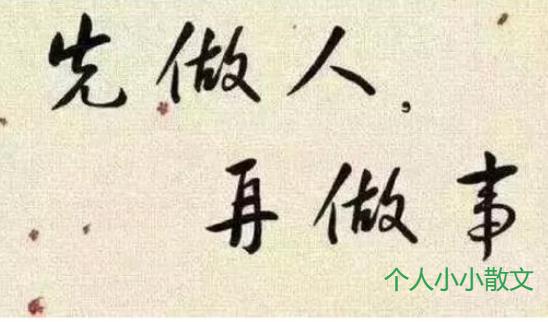 先做人，
再做事
个人小小散文